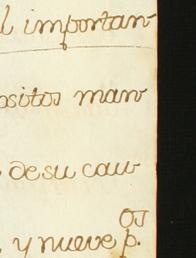 l importan-
ositos man
de su cau
os
y nueve p.